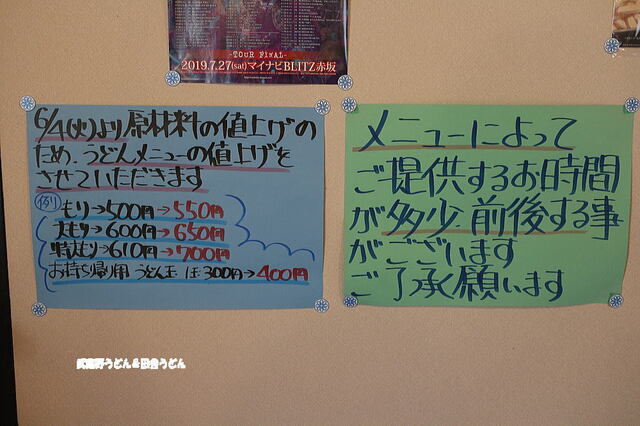 -TOUR FINAL-
2019.7.27(sat)マイナビBLITZ赤坂
6/4(火)より原材料の値上げの
ため、うどんメニューの値上げを
させていただきます
例) もり→500円→550円
大もり→600円→650円
特大もり→610円→700円
お持ち帰り用 うどん玉 1玉 300円→400円
メニューによって
ご提供するお時間
が多少前後する事
がございます
ご了承願います
武蔵野うどん&田舎うどん